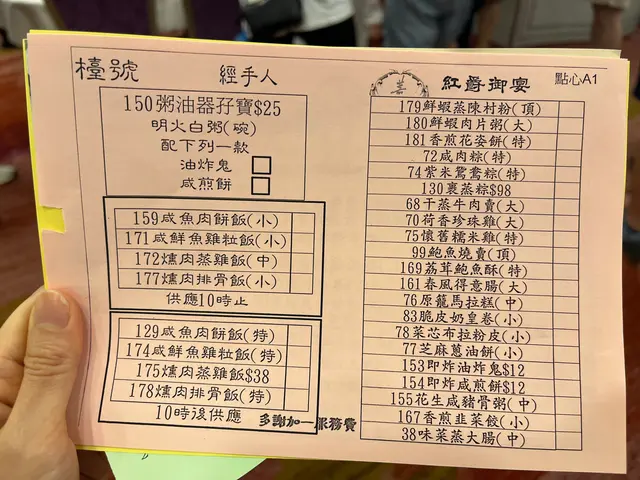 檯號
經手人
150粥油器孖寶$25
明火白粥(碗)
配下列一款
油炸鬼
咸煎餅
159咸魚肉餅飯(小)
171咸鮮魚雞粒飯(小)
172燻肉蒸雞飯(中)
177燻肉排骨飯(小)
供應10時止
129咸魚肉餅飯(特)
174咸鮮魚雞粒飯(特)
175燻肉蒸雞飯$38
178燻肉排骨飯(特)
10時後供應
多謝加一服務費
紅爵御宴
點心A1
179鮮蝦蒸陳村粉(頂)
180鮮蝦肉片粥(大)
181香煎花姿餅(特)
72咸肉粽(特)
74紫米鴛鴦粽(特)
130裹蒸粽$98
68干蒸牛肉賣(大)
70荷香珍珠雞(大)
75懷舊糯米雞(特)
99鮑魚燒賣(頂)
169荔茸鮑魚酥(特)
161春風得意腸(大)
76原籠馬拉糕(中)
83脆皮奶皇卷(小)
78菜芯布拉粉皮(小)
77芝麻蔥油餅(小)
153即炸油炸鬼$12
154即炸咸煎餅$12
155花生咸豬骨粥(中)
167香煎韭菜餃(小)
38味菜蒸大腸(中)